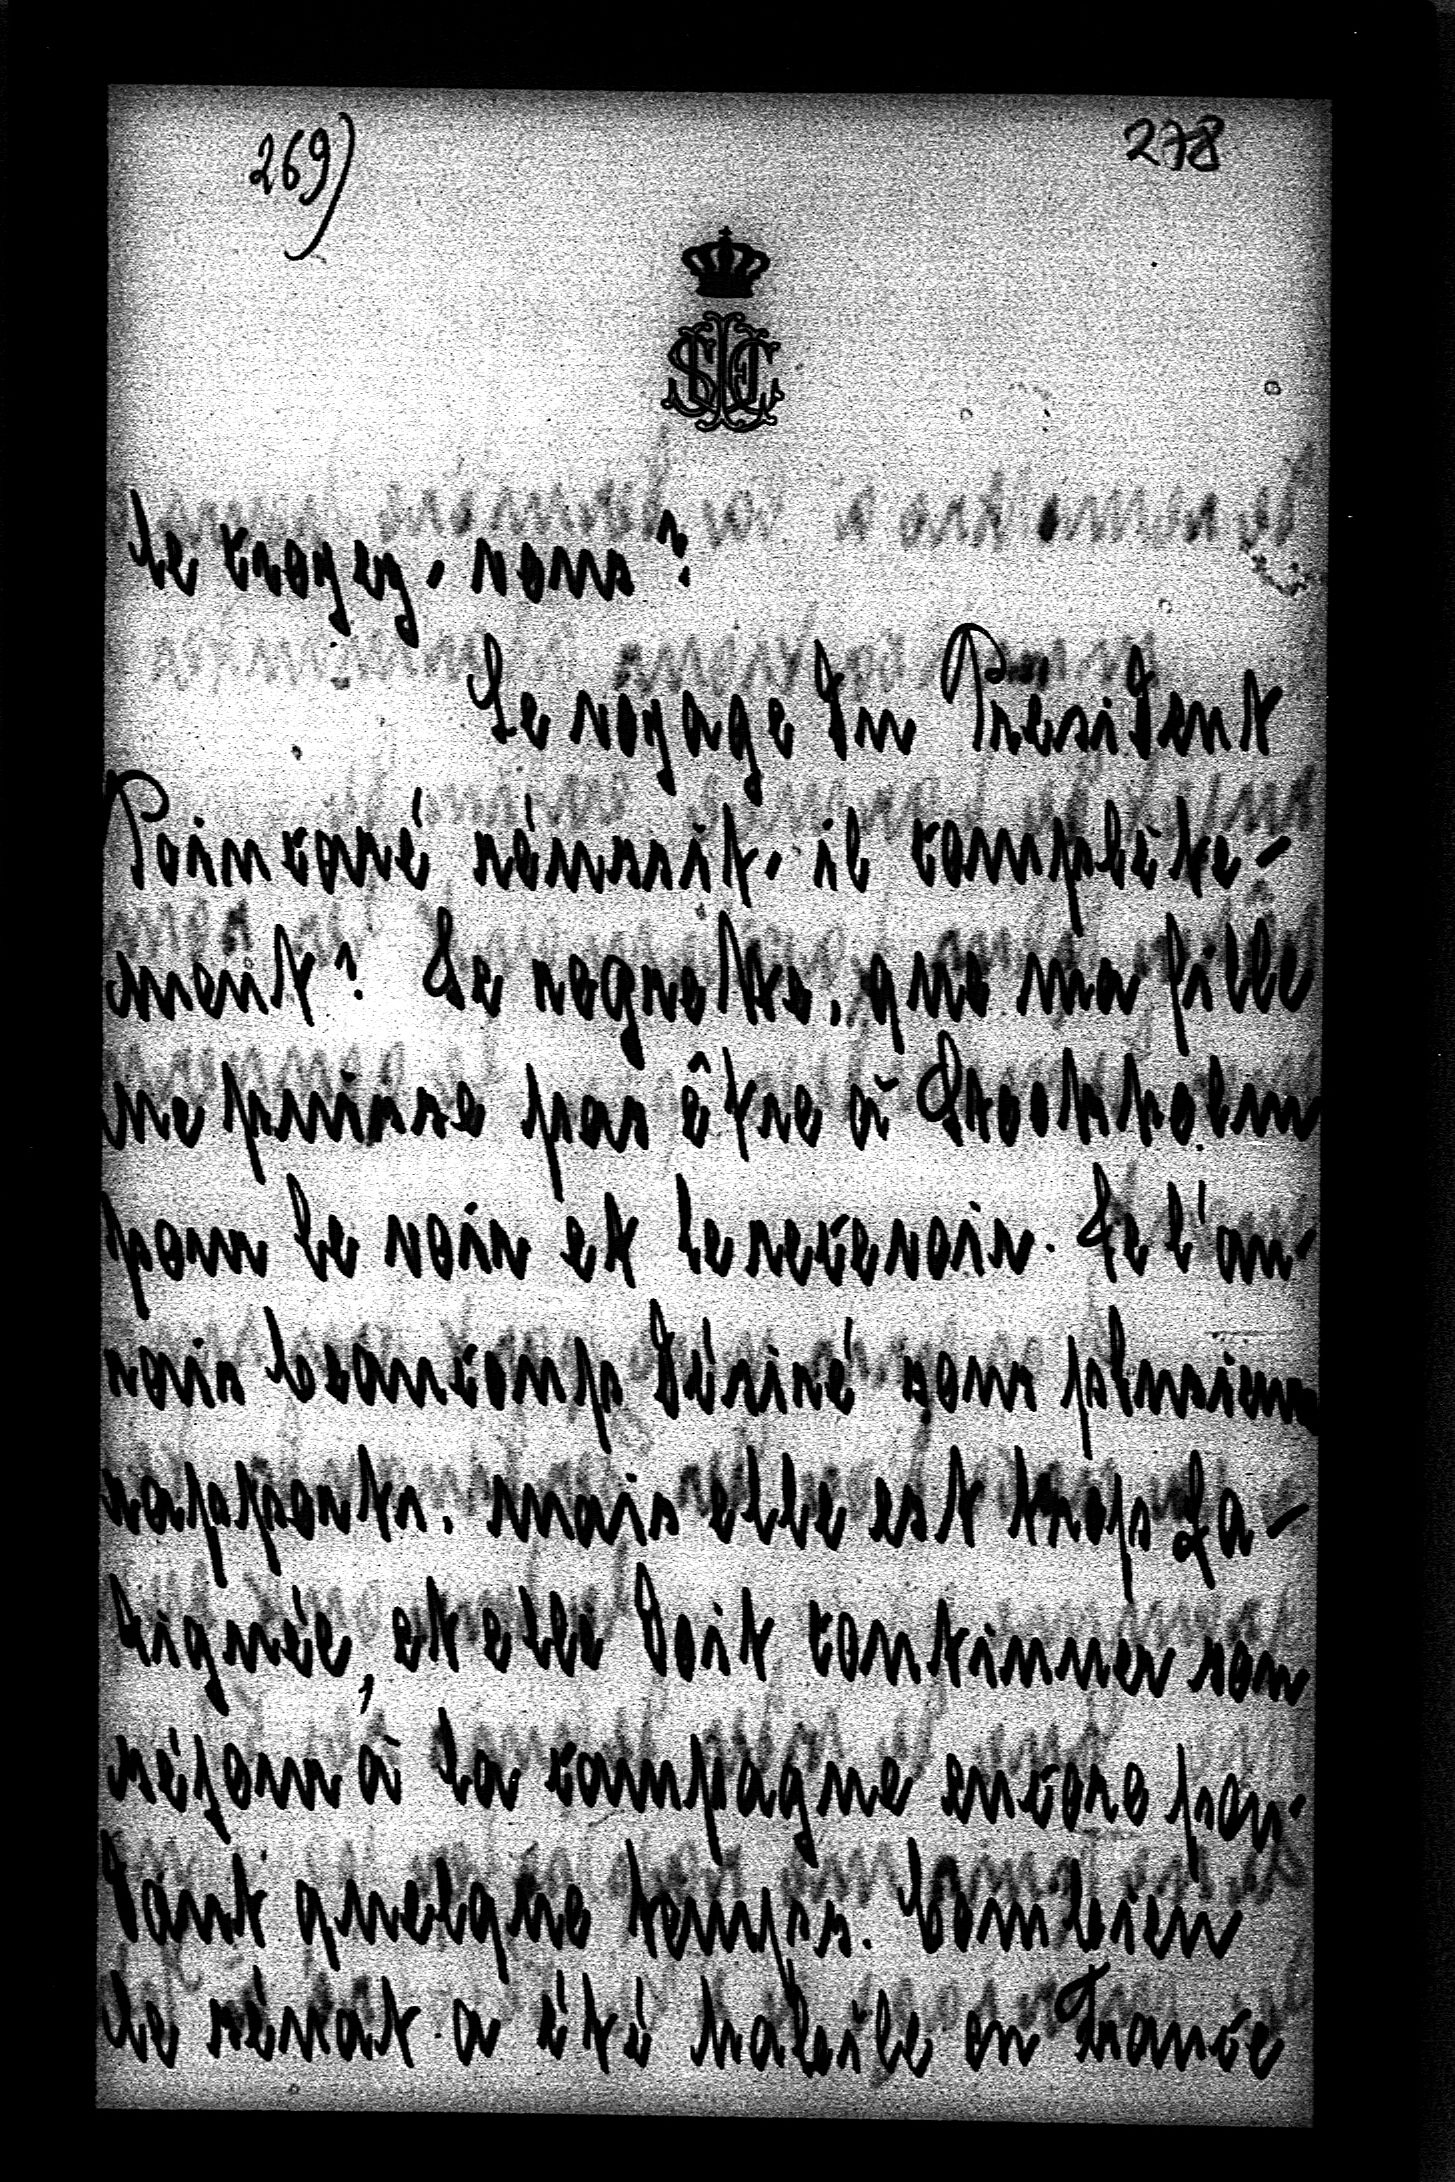 269)
278
le croyez-vous?
Le voyage du Président
Poincaré réussit-il complète-
ment? Je regrette, que ma fille
ne puisse pas être à Stockholm
pour le voir et le recevoir. Je l'au-
rais beaucoup désiré sous plusieurs
rapports. mais elle est trop fa-
tiguée, et elle doit continuer son
séjour à la campagne encore pen-
dant quelque temps. Combien
le sénat a été habile en France